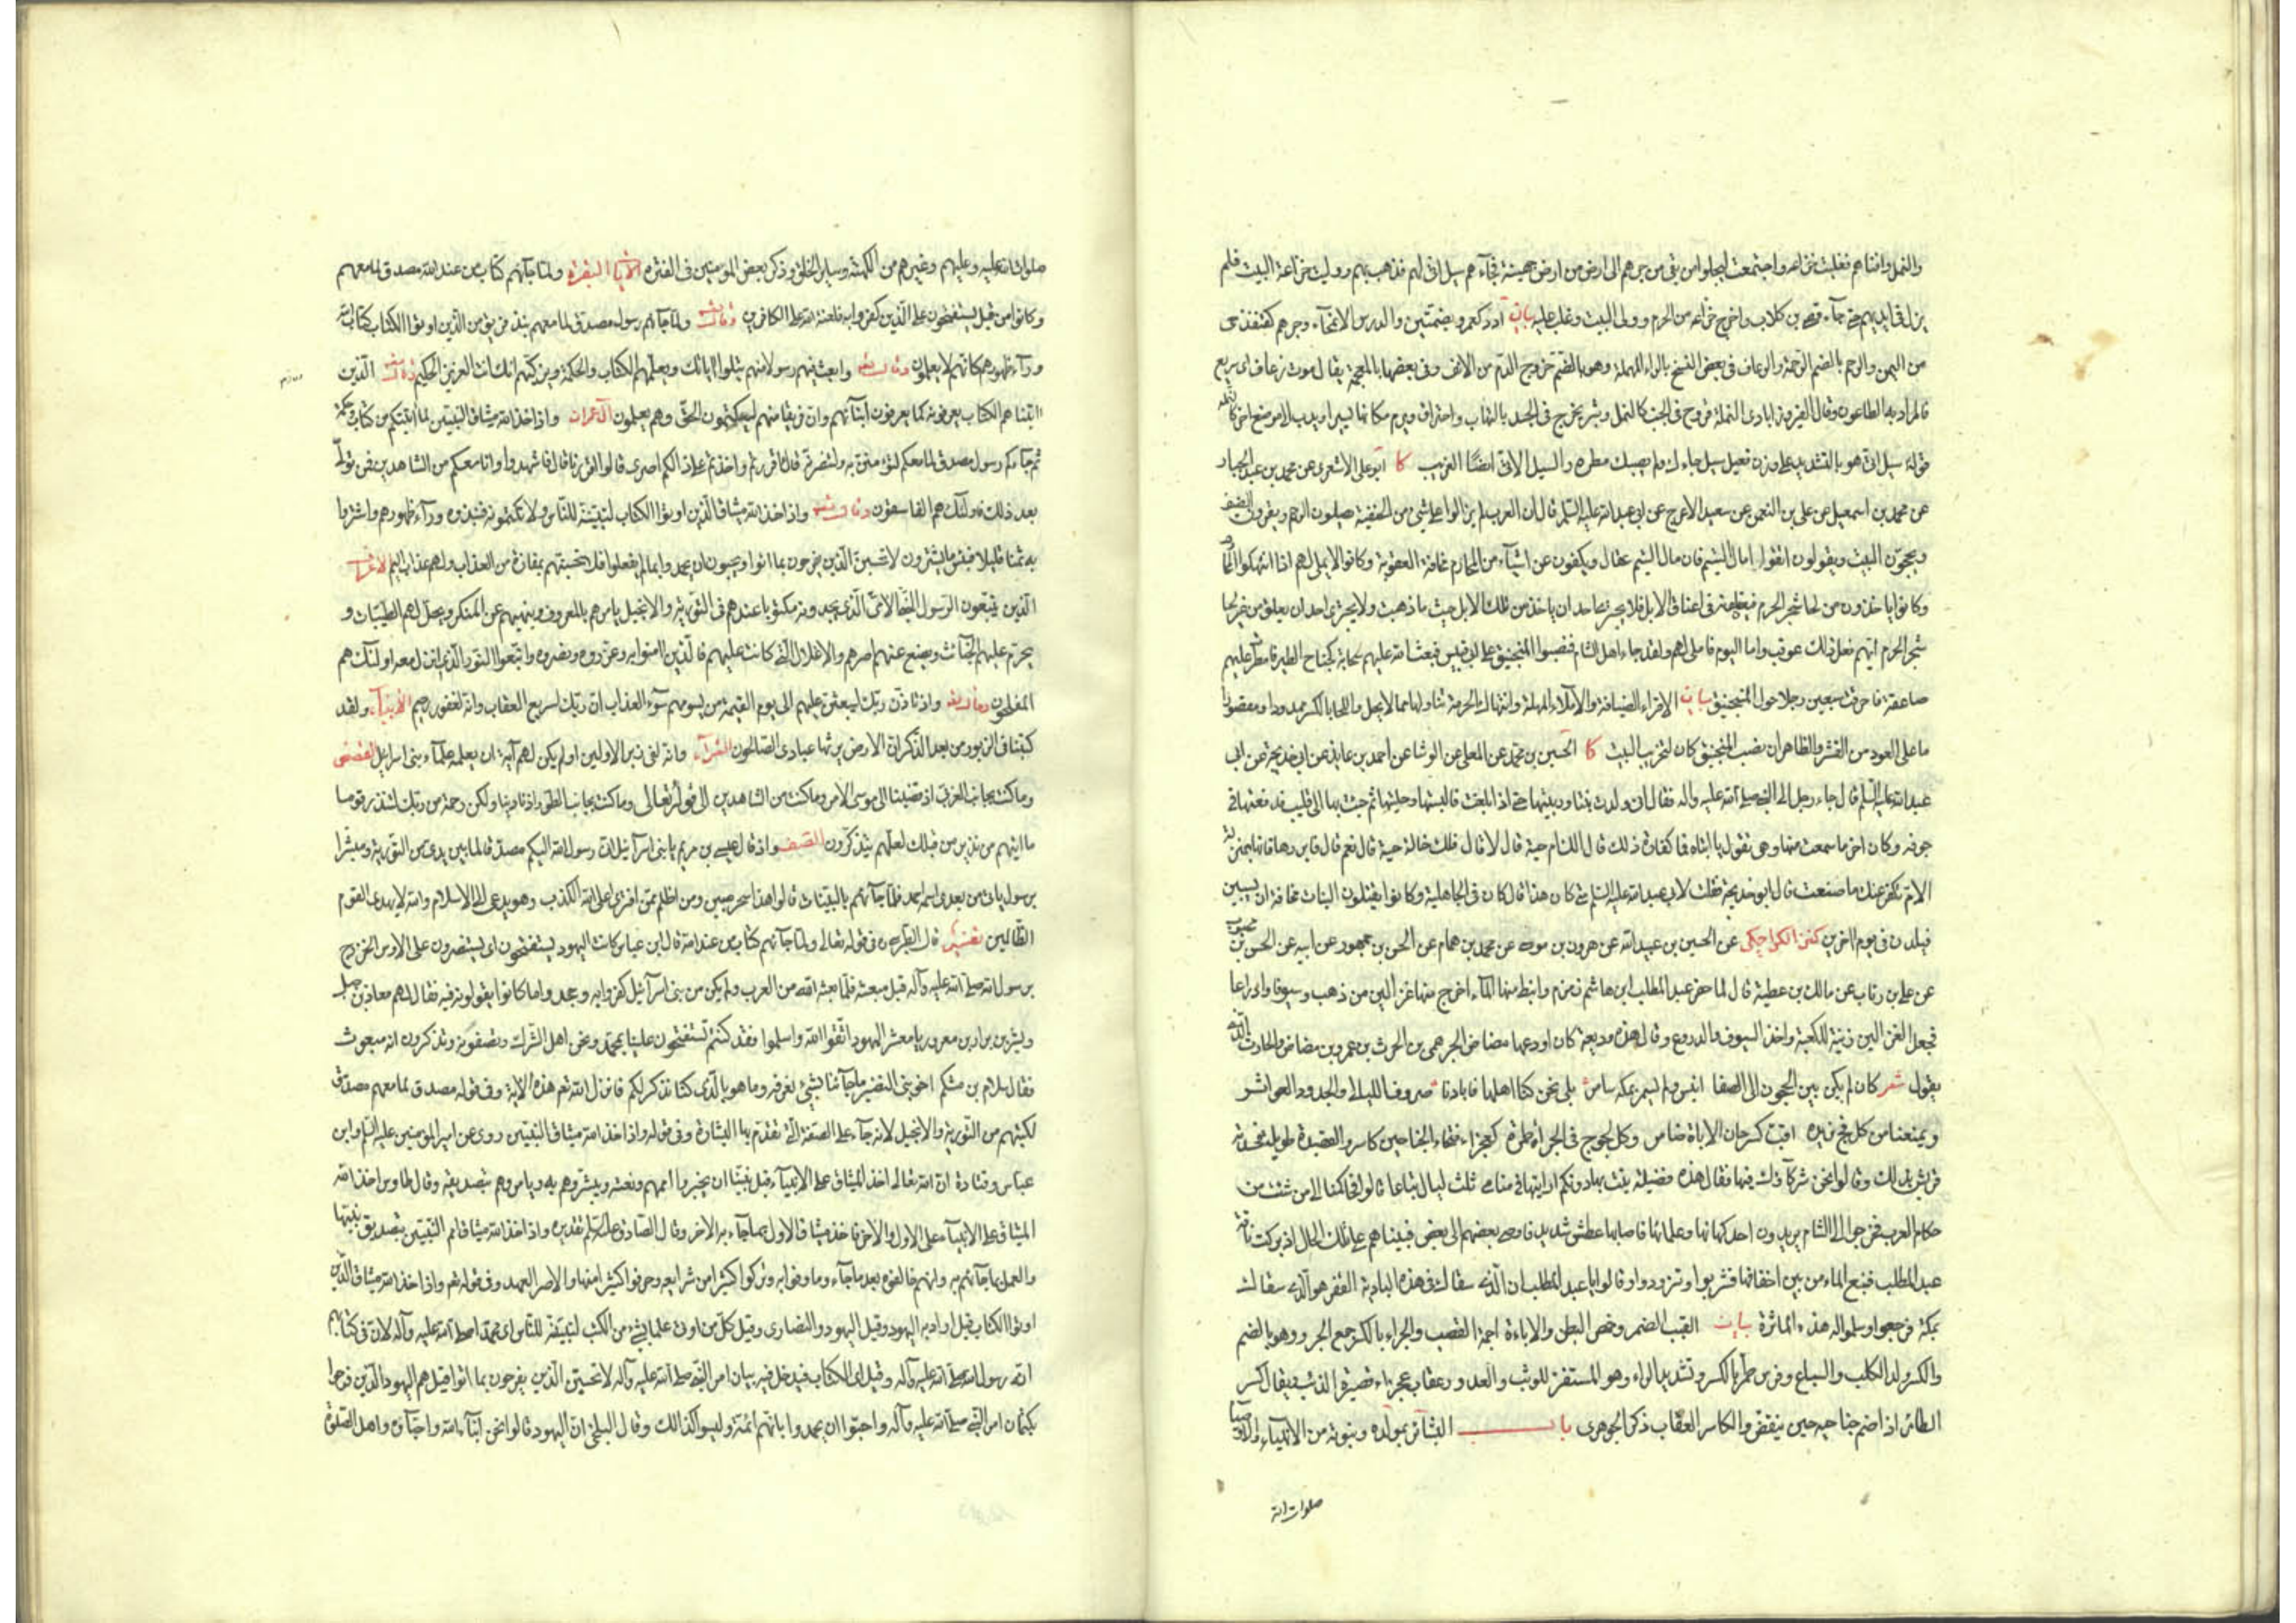 والنمل وافناهم فغلبت خزاعه واجتمعت ليجلوا من بقي من جرهم الى ارض من ارض جهينة فجآءهم سيل اتى لهم فذهب بهم ووليت خزاعة البيت فلم
يزل في ايديهم حتى جآء قصي بن كلاب واخرج خزاعه من الحرم وولى البيت وغلب عليه بيان ادد كعمر وبضمتين والدرس الامحآء وجرهم كقنفذ حى
من اليمن والرحم بالضم الرحمة والرعاف في بعض النسخ بالراء المهملة وهو بالضم خروج الدم من الانف وفي بعضها بالمعجمة يقال موت زعاف اى سريع
فالمراد به الطاعون وقال الفيروزابادى النملة قروح في الجنب كالنمل وبثر يخرج في الجسد بالتهاب واحتراق ويرم مكانها يسيرا ويدب الى موضع اخر كالنملة
قوله سيل اتى هو بالتشديد على وزن فعيل سيل جاءك ولم يصبك مطره والسيل الاتى ايضا الغريب كا ابو على الاشعرى عن محمد بن عبد الجبار
عن محمد بن اسمعيل عن على بن النعمن عن سعيد الاعرج عن ابى عبد الله عليه السلم قال ان العرب لم يزالوا على شئ من الحنفية يصلون الرحم ويقرون الضيف
ويحجون البيت ويقولون اتقوا مال اليتيم فان مال اليتيم عقال ويكفون عن اشيآء من المحارم مخافة العقوبة وكانوا لا يملى لهم اذا انتهكوا المحارم
وكانوا ياخذون من لحا شجر الحرم فيعلقونه في اعناق الابل فلا يجترئ احد ان ياخذ من تلك الابل حيث ما ذهبت ولا يجترى احد ان يعلق من غير لحا
شجر الحرم ايهم فعل ذلك عوقب واما اليوم فاملى لهم ولقد جاء اهل الشام فنصبوا المنجنيق على ابى قبيس فبعث الله عليهم سحابة كجناح الطير فامطرت عليهم
صاعقة فاحرقت سبعين رجلا حول المنجنيق بيان الاقراء الضيافة والاملاء المهلة وانتهاك الحرمة تناولها بما لا يحل واللحا بالكسر ممدودا ومقصورا
ما على العود من القشر والظاهر ان نصب المنجنيق كان لتخريب البيت كا الحسين بن محمد عن المعلى عن الوشا عن احمد بن عايذ عن ابى خديجة عن ابى
عبد الله عليه السلم قال جاء رجل الى النبى صلى الله عليه واله فقال انى ولدت بنتا وربيتها حتى اذا بلغت فالبستها وحليتها ثم جئت بها الى قليب فدفعتها في
جوفه وكان اخر ما سمعت منها وهى تقول يا ابتاه فما كفارة ذلك قال الك ام حية قال لا قال فلك خالة حية قال نعم قال فابررها فانها بمنزلة
الام تكفر عنك ما صنعت قال ابو خديجة فقلت لابى عبد الله عليه السلم متى كان هذا قال كان في الجاهلية وكانوا يقتلون البنات مخافة ان يسبين
فيلدن في قوم اخرين كنز الكراجكى عن الحسين بن عبيد الله عن هرون بن موسى عن محمد بن همام عن الحسن بن جمهور عن ابيه عن الحسن بن محبوب
عن على بن رئاب عن مالك بن عطية قال لما حفر عبد المطلب ابن هاشم زمزم وانبط منها المآء اخرج منها غزالين من ذهب وسيوفا وادراعا
فجعل الغزالين زينة للكعبة واخذ السيوف والدروع وقال هذه وديعة كان اودعها مضاض الجرهمى بن الحرث بن عمرو بن مضاض والحارث الذى
يقول شعر كان لم يكن بين الحجون الى الصفا انيس ولم يسمر بمكة سامر بلى نحن كنا اهلها فابادنا صروف الليالى والجدود العواثر
ويمنعنا من كل فج نريده اقب كسرحان الاباة ضامر وكل لجوج في الجراء طمرة كعجزاء فتخاء الجناحين كاسر والقصيدة طويلة فحسدته
قريش بذلك وقالوا نحن شركآؤك فيها فقال هذه فضيلة نبئت بها دونكم اريتها في منامى ثلث ليال تباعا قالوا فحاكمنا الى من شئت من
حكام العرب فخرجوا الى الشام يريدون احد كهانها وعلمائها فاصابهم عطش شديد فاوصى بعضهم الى بعض فبيناهم على تلك الحال اذ بركت ناقة
عبد المطلب فنبع الماء من بين اخفافها فشربوا وتزودوا وقالوا يا عبد المطلب ان الذى سقاك في هذه البادية القفر هو الذى سقاك
بمكة فرجعوا وسلموا له هذه المأثرة بيان القبب الضمر وخمص البطن والاباءة اجمة القصب والجراء بالكسر جمع الجرو وهو بالضم
والكسر ولد الكلب والسباع وفرس طمر بالكسر وتشديد الراء وهو المستفز للوثب والعدو وعقاب عجزاء قصيرة الذنب ويقال كسر
الطائر اذا ضم جناحيه حين ينقض والكاسر العقاب ذكر الجوهرى باب البشائر بمولده ونبوته من الانبياء والاوصيآء
صلوات الله
صلوات الله عليه وعليهم وغيرهم من الكهنة وسائر الخلق وذكر بعض المؤمنين في الفترة الآيات البقرة ولما جآءهم كتاب من عند الله مصدق لما معهم
وكانوا من قبل يستفتحون على الذين كفروا به فلعنة الله على الكافرين وقال تعالى ولما جآءهم رسول مصدق لما معهم نبذ فريق من الذين اوتوا الكتاب كتاب الله
ورآء ظهورهم كانهم لا يعلمون وقال تعالى وابعث فيهم رسولا منهم يتلوا اياتك ويعلمهم الكتاب والحكمة ويزكيهم انك انت العزيز الحكيم وقال تعالى الذين
اتيناهم الكتاب يعرفونه كما يعرفون ابنآئهم وان فريقا منهم ليكتمون الحق وهم يعلمون آل عمران واذ اخذ الله ميثاق النبيين لما اتيتكم من كتاب وحكمة
ثم جآءكم رسول مصدق لما معكم لتؤمنن به ولتنصرنه قال ءاقررتم واخذتم على ذلكم اصرى قالوا اقررنا قال فاشهدوا وانا معكم من الشاهدين فمن تولى
بعد ذلك فاولئك هم الفاسقون وقال تعالى واذ اخذ الله ميثاق الذين اوتوا الكتاب لتبيننه للناس ولا تكتمونه فنبذوه ورآء ظهورهم واشتروا
به ثمنا قليلا فبئس ما يشترون لا تحسبن الذين يفرحون بما اتوا ويحبون ان يحمدوا بما لم يفعلوا فلا تحسبنهم بمفازة من العذاب ولهم عذاب اليم الاعراف
الذين يتبعون الرسول النبى الامى الذى يجدونه مكتوبا عندهم في التورية والانجيل يامرهم بالمعروف وينهيهم عن المنكر ويحل لهم الطيبات و
يحرم عليهم الخبآئث ويضع عنهم اصرهم والاغلال التى كانت عليهم فالذين امنوا به وعزروه ونصروه واتبعوا النور الذى انزل معه اولئك هم
المفلحون وقال تعالى واذ تاذن ربك ليبعثن عليهم الى يوم القيمة من يسومهم سوء العذاب ان ربك لسريع العقاب وانه لغفور رحيم الانبيآء ولقد
كتبنا في الزبور من بعد الذكر ان الارض يرثها عبادى الصالحون الشعرآء وانه لفى زبر الاولين اولم يكن لهم آية ان يعلمه علمآء بنى اسرايل القصص
وما كنت بجانب الغربى اذ قضينا الى موسى الامر وما كنت من الشاهدين الى قوله تعالى وما كنت بجانب الطور اذ نادينا ولكن رحمة من ربك لتنذر قوما
ما اتيهم من نذير من قبلك لعلهم يتذكرون الصف واذ قال عيسى بن مريم يا بنى اسرآئيل انى رسول الله اليكم مصدقا لما بين يدى من التورية ومبشرا
برسول ياتى من بعدى اسمه احمد فلما جآءهم بالبينات قالوا هذا سحر مبين ومن اظلم ممن افترى على الله الكذب وهو يدعى الى الاسلام والله لا يهدى القوم
الظالمين تفسير قال الطبرسى في قوله تعالى ولما جآءهم كتاب من عند الله قال ابن عباس كانت اليهود يستفتحون اى يستنصرون على الاوس والخزرج
برسول الله صلى الله عليه وآله قبل مبعثه فلما بعثه الله من العرب ولم يكن من بنى اسرآئيل كفروا به وجحدوا ما كانوا يقولونه فيه فقال لهم معاذ بن جبل
وبشر بن برا بن معرور يا معشر اليهود اتقوا الله واسلموا فقد كنتم تستفتحون علينا بمحمد ونحن اهل الشرك وتصفونه وتذكرون انه مبعوث
فقال سلام بن مشكم اخو بنى النضير ما جآءنا بشئ نعرفه وما هو بالذى كنا نذكر لكم فانزل الله تعالى هذه الاية وفي قوله مصدق لما معهم مصدق
لكتبهم من التورية والانجيل لانه جآء على الصفة التى تقدم بها البشارة وفي قوله واذ اخذ الله ميثاق النبيين روى عن امير المؤمنين عليه السلم وابن
عباس وقتادة ان الله تعالى اخذ الميثاق على الانبيآء قبل نبينا ان يخبروا اممهم ونعته ويبشروهم به ويامروهم بتصديقه وقال طاوس اخذ الله
الميثاق على الانبيآء على الاول والاخر فاخذ ميثاق الاول بما جآء به الاخر وقال الصادق عليه السلم تقديره واذ اخذ الله ميثاق امم النبيين بتصديق نبيها
والعمل بما جآءهم به وانهم خالفوه بعد ما جآء وما وفوا به وتركوا كثيرا من شرايعه وحرفوا كثيرا منها والاصر العهد وفي قوله تعالى واذ اخذ الله ميثاق الذين
اوتوا الكتاب قيل اراد به اليهود وقيل اليهود والنصارى وقيل كل من اوتى علما بشئ من الكتب لتبيننه للناس اى محمدا صلى الله عليه وآله لان في كتابهم
انه رسول الله صلى الله عليه وآله وقيل اى الكتاب فيدخل فيه بيان امر النبى صلى الله عليه وآله لا تحسبن الذين يفرحون بما اتوا قيل هم اليهود الذين فرحوا
بكتمان امر النبى صلى الله عليه وآله واحبوا ان يحمدوا بانهم ائمة وليسوا كذلك وقال البلخى ان اليهود قالوا نحن ابنآء الله واحبآؤه واهل الصلوة